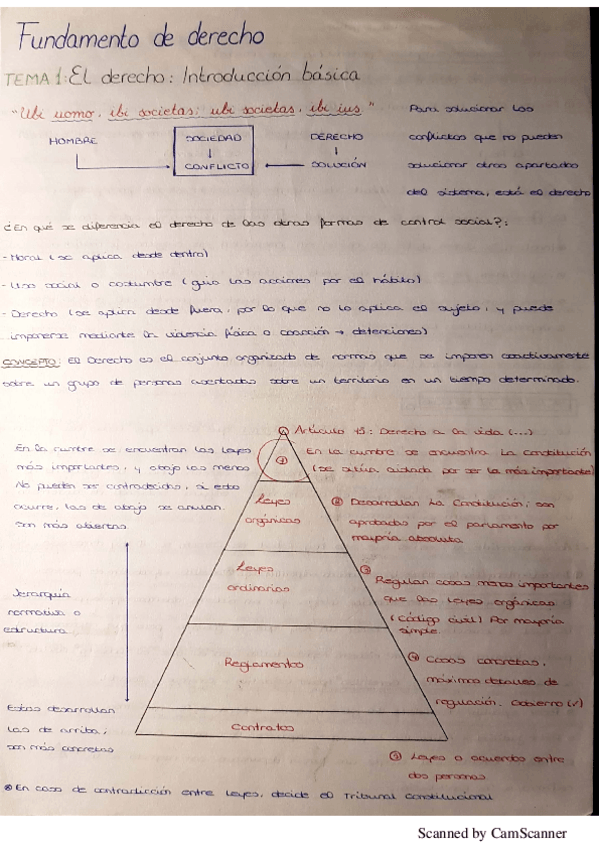 Fundamento de derecho
TEMA 1: El derecho: Introducción básica
"Ubi uomo, ibi societas; ubi societas, ibi ius."
HOMBRE
SOCIEDAD
↓
CONFLICTO
DERECHO
↓
SOLUCIÓN
Para solucionar los
conflictos que no pueden
solucionar otros apartados
del sistema, está el derecho
¿En qué se diferencia el derecho de las otras formas de control social?:
- Moral (se aplica desde dentro)
- Uso social o costumbre (guía las acciones por el hábito)
- Derecho (se aplica desde fuera, por lo que no lo aplica el sujeto, y puede
imponerse mediante la violencia física o coacción → detenciones)
CONCEPTO: El Derecho es el conjunto organizado de normas que se imponen coactivamente
sobre un grupo de personas asentadas sobre un territorio en un tiempo determinado.
Artículo 15: Derecho a la vida (...)
En la cumbre se encuentran las leyes
más importantes, y abajo las menos
No pueden ser contradecidas, si esto
ocurre, las de abajo se anulan.
Son más abiertas
① En la cumbre se encuentra la Constitución
(se sitúa aislada por ser la más importante)
Leyes
orgánicas
② Desarrollan la Constitución; son
aprobadas por el parlamento por
mayoría absoluta
Leyes
ordinarias
③ Regulan cosas menos importantes
que las leyes orgánicas
(código civil) Por mayoría
simple.
Jerarquía
normativa o
estructura
Reglamentos
④ Cosas concretas,
máximo detalles de
regulación. Gobierno (✓)
Estas desarrollan
las de arriba;
son más concretas
Contratos
⑤ Leyes o acuerdos entre
dos personas
⊗ En caso de contradicción entre leyes, decide el Tribunal Constitucional
Scanned by CamScanner